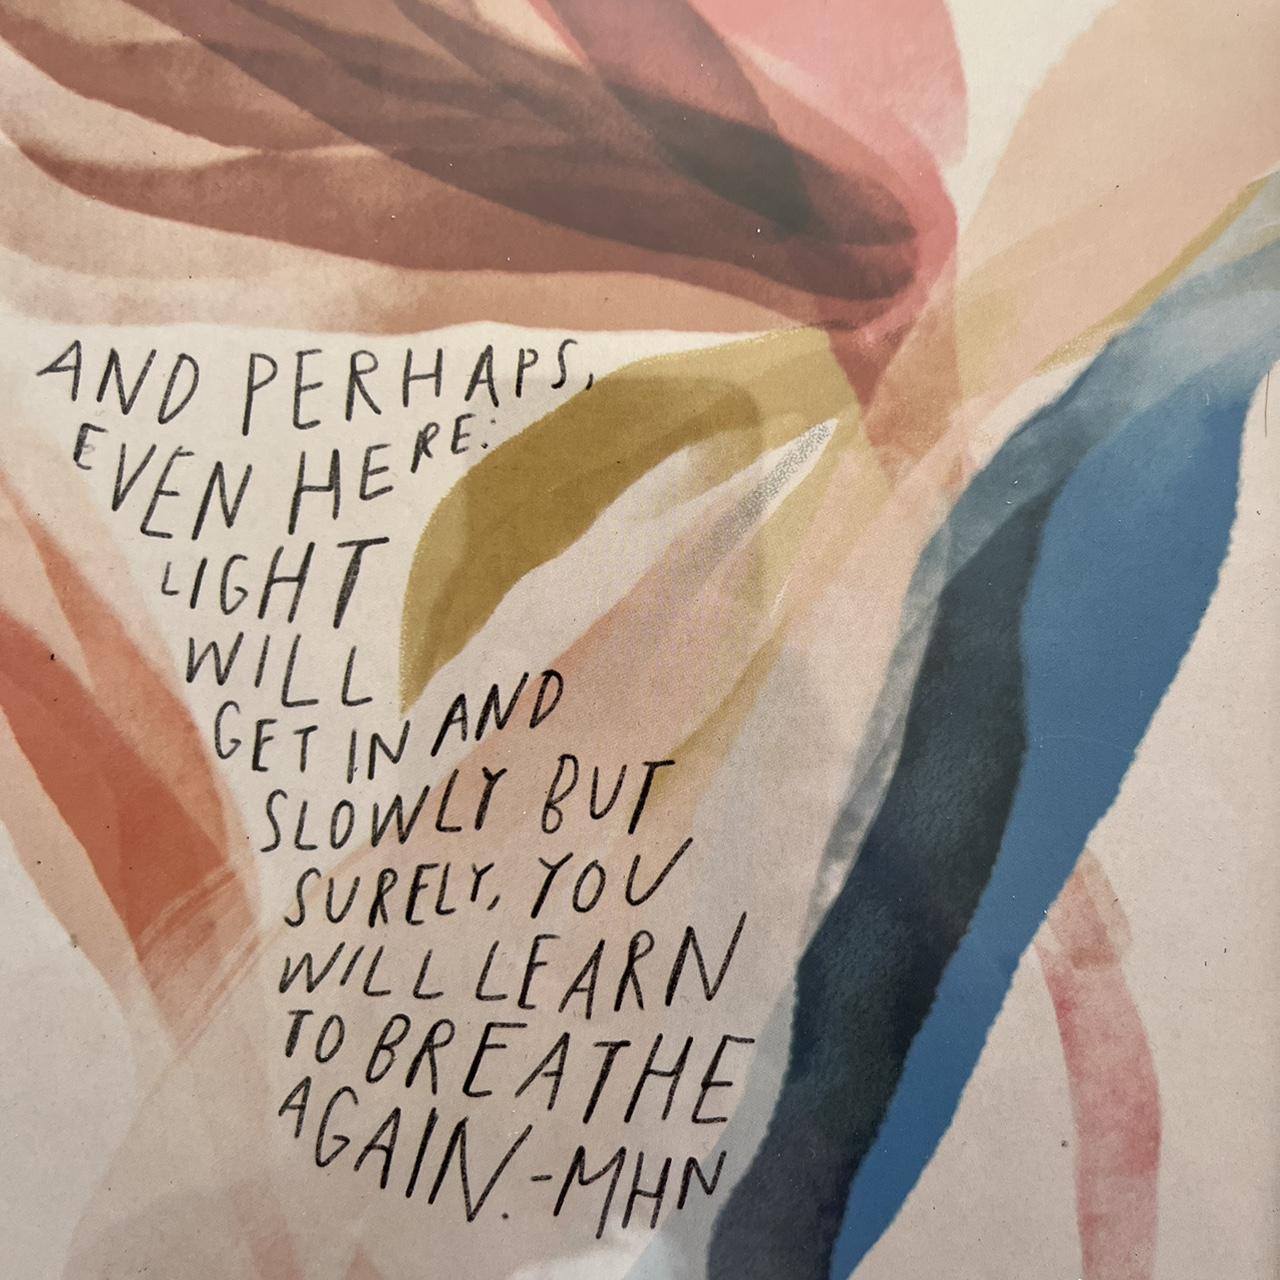 AND PERHAPS,
EVEN HERE:
LIGHT
WILL
GET IN AND
SLOWLY BUT
SURELY, YOU
WILL LEARN
TO BREATHE
AGAIN. -MHN